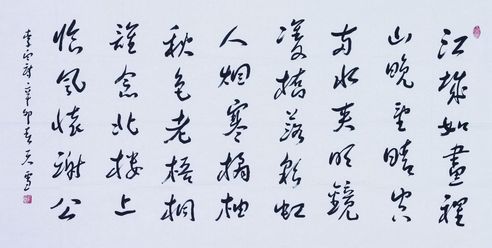 江城如畫裡
山晚望晴空
兩水夾明鏡
雙橋落彩虹
人烟寒橘柚
秋色老梧桐
誰念北樓上
臨風懷謝公
李白詩 辛卯春